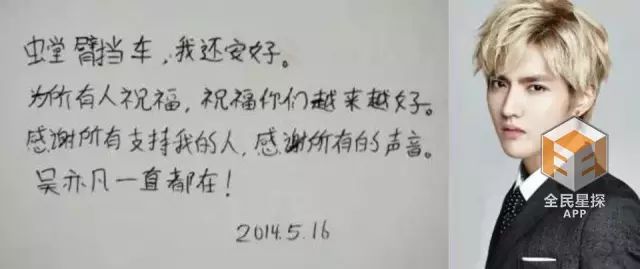 虫堂臂挡车,我还安好。
为所有人祝福,祝福你们越来越好。
感谢所有支持我的人,感谢所有的声音。
吴亦凡一直都在!
2014.5.16
全民星探
APP